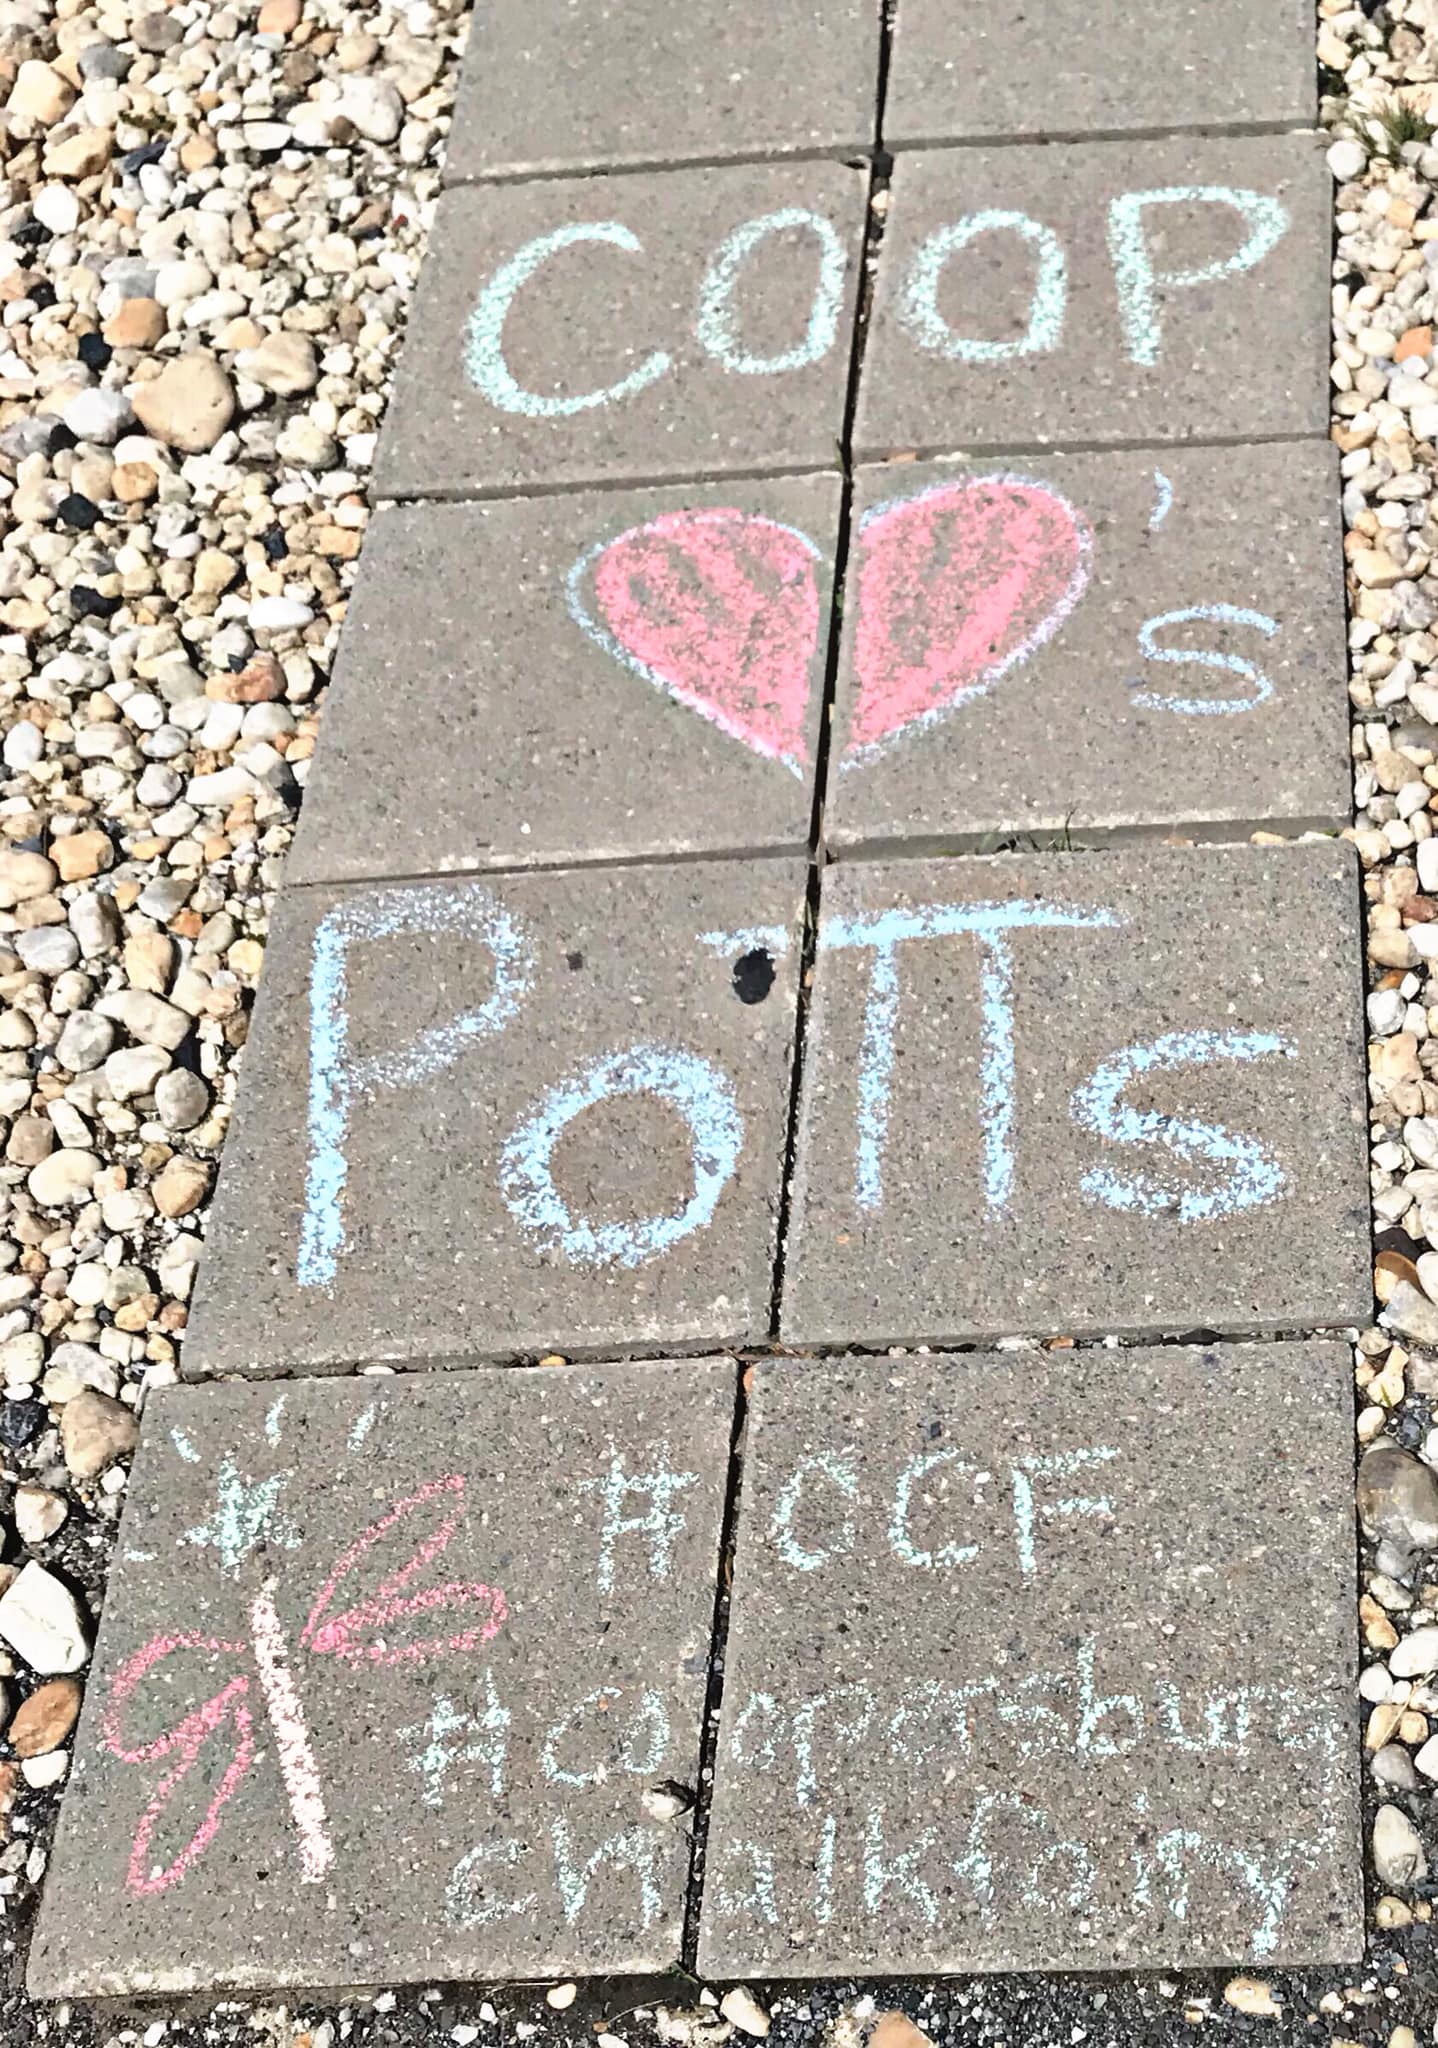 COOP
's
POTTS
#CCF
chalkfairy